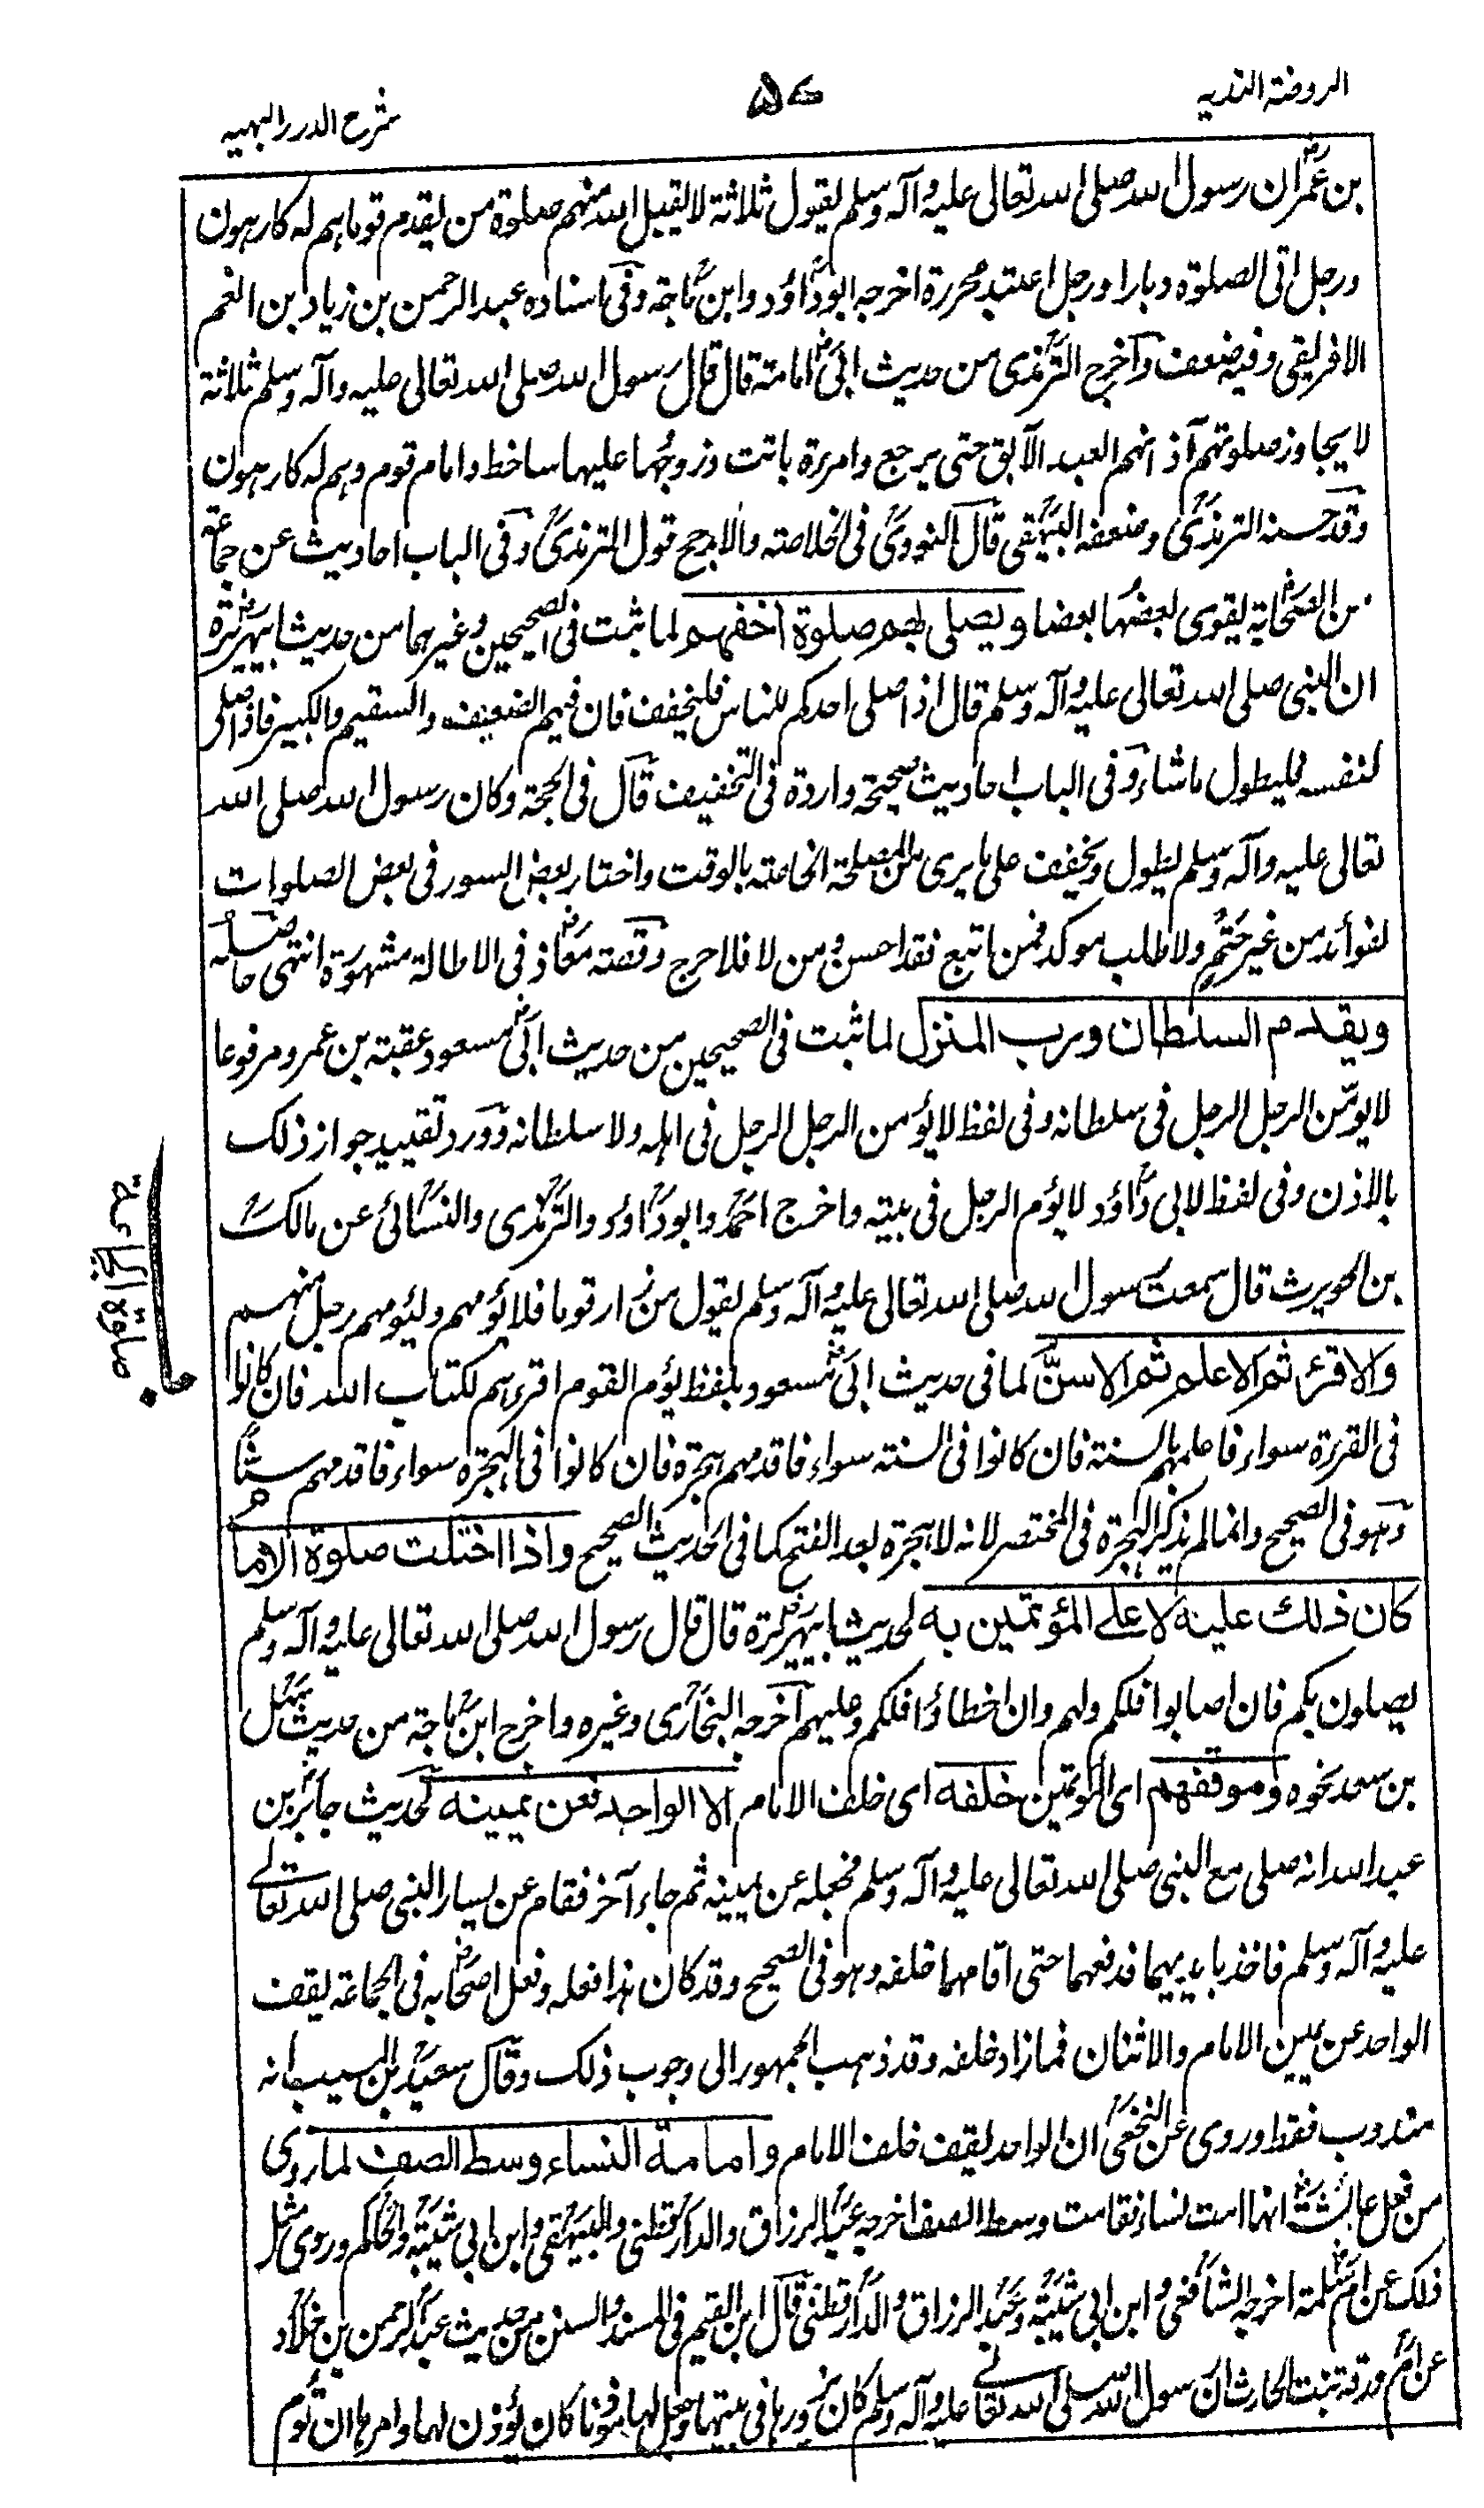 الروضة الندیه
۵۷
شرح الدرر البهیه
بن عمران رسول الله صلی الله تعالی علیه وآله وسلم یقول ثلاثة لا یقبل الله منهم صلوة من یقدم قوما هم له کارهون
ورجل اتی الصلوة دبارا ورجل اعتبد محررة اخرجه ابوداؤد وابن ماجة وفی اسناده عبد الرحمن بن زیاد بن انعم
الافریقی وفیه ضعف وآخرج الترمذی من حدیث ابی امامة قال قال رسول الله صلی الله تعالی علیه وآله وسلم ثلاثة
لا یجاوز صلوتهم آذانهم العبد الآبق حتی یرجع وامرءة باتت وزوجها علیها ساخط وامام قوم وهم له کارهون
وقد حسنه الترمذی وضعفه البیهقی قال النووی فی الخلاصة والارجح قول الترمذی وفی الباب احادیث عن جماعة
من الصحابة یقوی بعضها بعضا ویصلی بهم صلوة اخفهم لما ثبت فی الصحیحین وغیرهما من حدیث ابیهریرة
ان النبی صلی الله تعالی علیه وآله وسلم قال اذا صلی احدکم للناس فلیخفف فان فیهم الضعیف والسقیم والکبیر فاذا صلی
لنفسه فلیطول ما شاء وفی الباب احادیث صحیحة واردة فی التخفیف قال فی الحجة وکان رسول الله صلی الله
تعالی علیه وآله وسلم یطول ویخفف علی ما یری من المصلحة الخاصة بالوقت واختار بعض السور فی بعض الصلوات
لفوائد من غیر حتم ولا طلب موکد فمن اتبع فقد احسن ومن لا فلا حرج وقصة معاذ فی الاطالة مشهورة انتهی حاصله
ویقدم السلطان ورب المنزل لما ثبت فی الصحیحین من حدیث ابی مسعود عقبة بن عمرو مرفوعا
لا یؤمن الرجل الرجل فی سلطانه وفی لفظ لا یؤمن الرجل الرجل فی اهله ولا سلطانه وورد تقیید جواز ذلک
بالاذن وفی لفظ لابی داؤد لا یؤم الرجل فی بیته واخرج احمد وابوداؤد والترمذی والنسائی عن مالک
بن الحویرث قال سمعت رسول الله صلی الله تعالی علیه وآله وسلم یقول من زار قوما فلا یؤمهم ولیؤمهم رجل منهم
والاقرئ ثم الاعلم ثم الاسنّ لما فی حدیث ابی مسعود بلفظ یؤم القوم اقرءهم لکتاب الله فان کانوا
فی القراءة سواء فاعلمهم بالسنة فان کانوا فی السنة سواء فاقدمهم هجرة فان کانوا فی الهجرة سواء فاقدمهم سنًّا
وهو فی الصحیح وانما لم یذکر الهجرة فی المختصر لانه لا هجرة بعد الفتح کما فی الحدیث الصحیح واذا اختلت صلوة الامام
کان ذلک علیه لا علی المؤتمین به لحدیث ابیهریرة قال قال رسول الله صلی الله تعالی علیه وآله وسلم
یصلون بکم فان اصابوا فلکم ولهم وان اخطاؤا فلکم وعلیهم آخرجه البخاری وغیره واخرج ابن ماجة من حدیث سهل
بن سعد نحوه وموقفهم ای المؤتمین خلفه ای خلف الامام الا الواحد فعن یمینه لحدیث جابر بن
عبد الله انه صلی مع النبی صلی الله تعالی علیه وآله وسلم فجعله عن یمینه ثم جاء آخر فقام عن یسار النبی صلی الله تعالی
علیه وآله وسلم فاخذ بایدیهما فدفعهما حتی اقامهما خلفه وهو فی الصحیح وقد کان هذا فعله وفعل اصحابه فی الجماعة یقف
الواحد عن یمین الامام والاثنان فما زاد خلفه وقد ذهب الجمهور الی وجوب ذلک وقال سعید بن المسیب انه
مندوب فقط وروی عن النخعی ان الواحد یقف خلف الامام وامامة النساء وسط الصف لما روی
من فعل عائشة انها امت نساء فقامت وسط الصف اخرجه عبد الرزاق والدارقطنی والبیهقی وابن ابی شیبة والحاکم وروی مثل
ذلک عن ام سلمة اخرجه الشافعی وابن ابی شیبة وعبد الرزاق والدارقطنی قال ابن القیم فی المسند والسنن من حدیث عبد الرحمن بن خلاد
عن ام ورقة بنت الحارث ان رسول الله صلی الله تعالی علیه وآله وسلم کان یزورها فی بیتها وجعل لها مؤذنا کان یؤذن لها وامرها ان تؤم
صلوة الجماعة